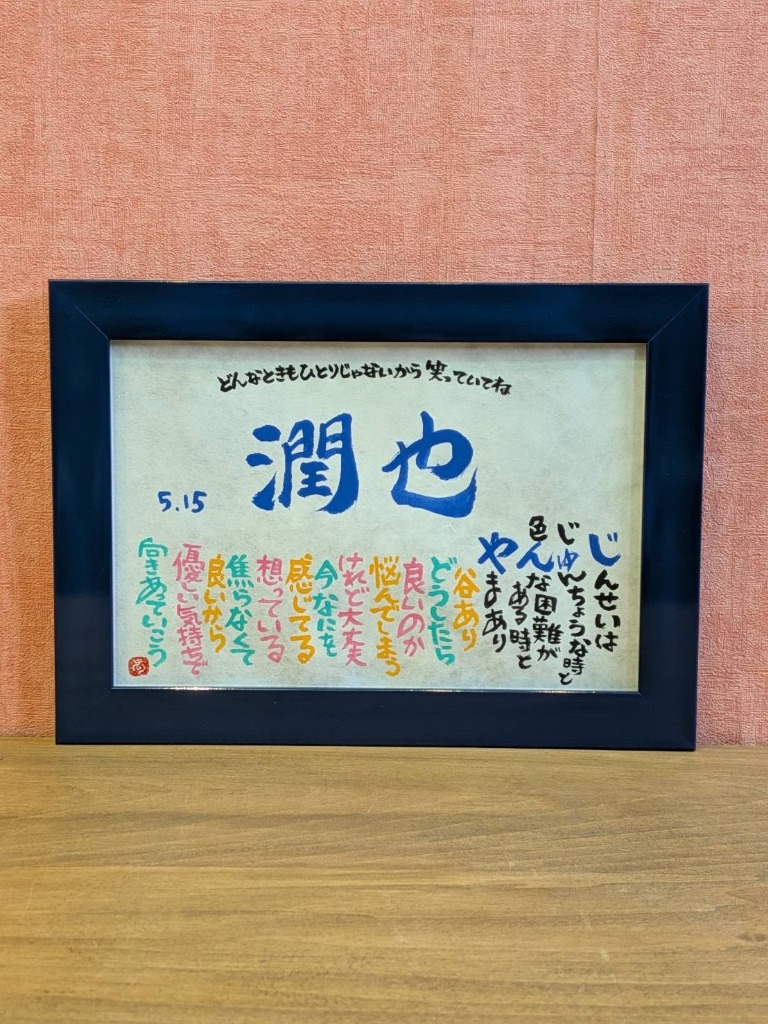 どんなときもひとりじゃないから笑っていてね
潤也
5.15
じんせいは
じゅんちょうな時と
色んな困難が
ある時と
やまあり
谷あり
どうしたら
良いのか
悩んでしまう
けれど大丈夫
今なにを
感じてる
想っている
焦らなくて
良いから
優しい気持ちで
向きあっていこう